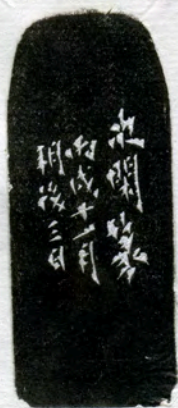 次閑篆
丙戌十一月
朔後三日